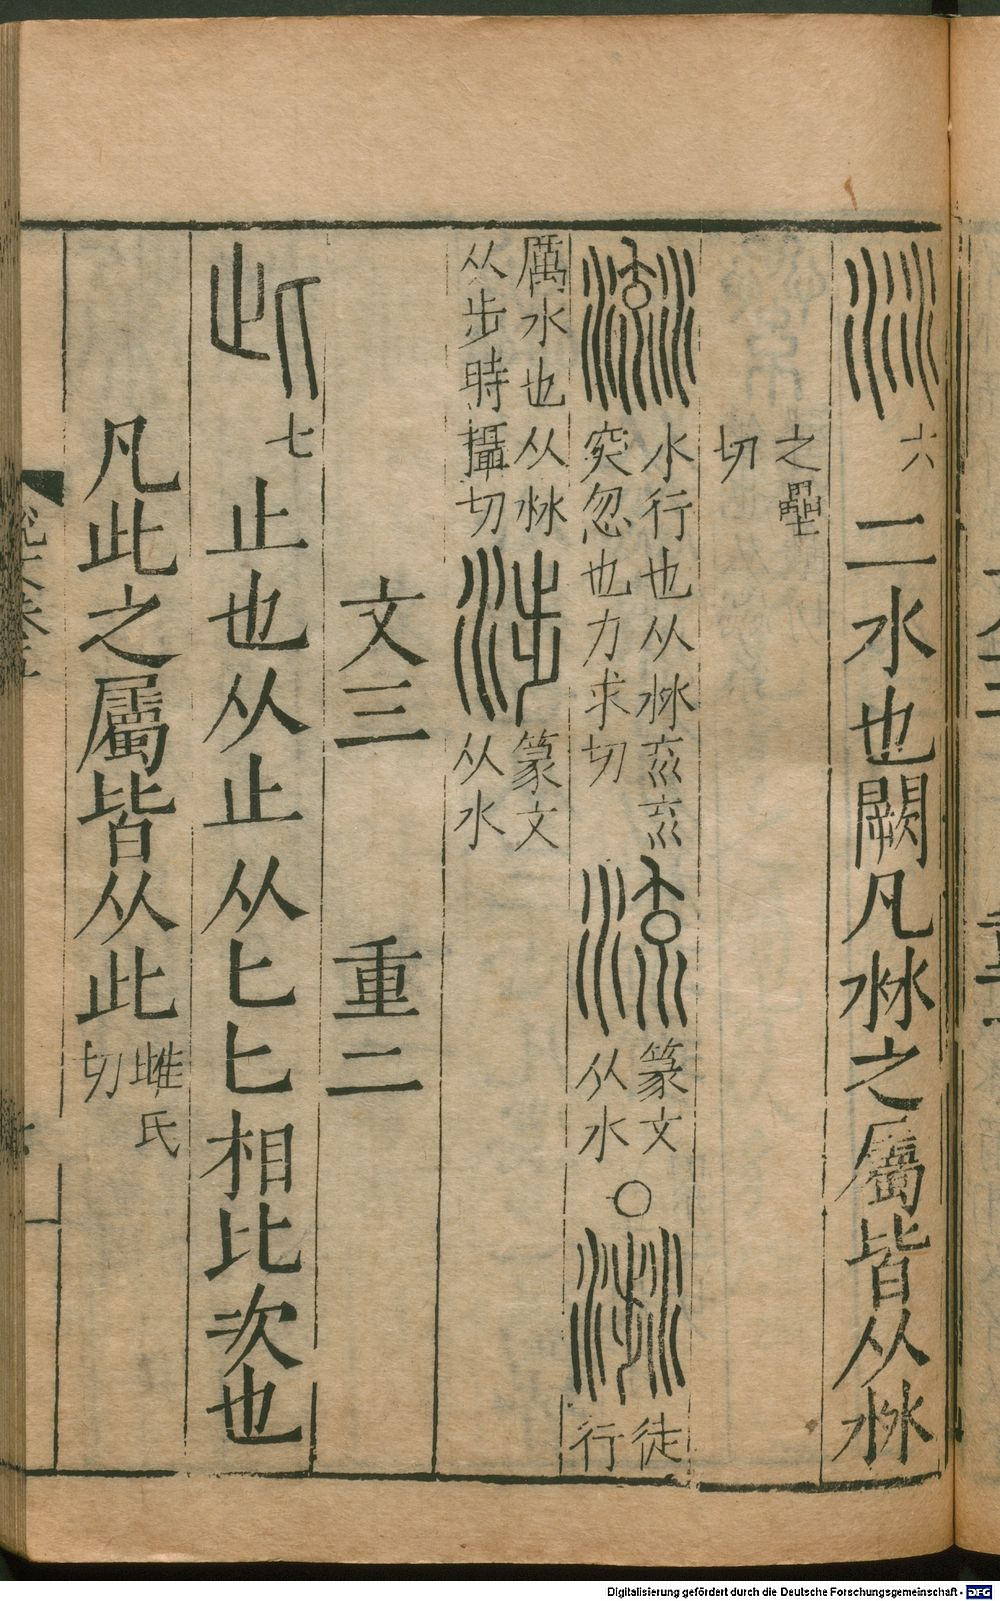 沝六 二水也闕凡沝之屬皆从沝
之壘切
𣹰 水行也从沝𠫓𠫓突忽也力求切 流 篆文从水 〇 𣻣 徒行
厲水也从沝从步時攝切 涉 篆文从水
文三 重二
此七 止也从止从匕匕相比次也
凡此之屬皆从此 雌氏切
Digitalisierung gefördert durch die Deutsche Forschungsgemeinschaft - DFG